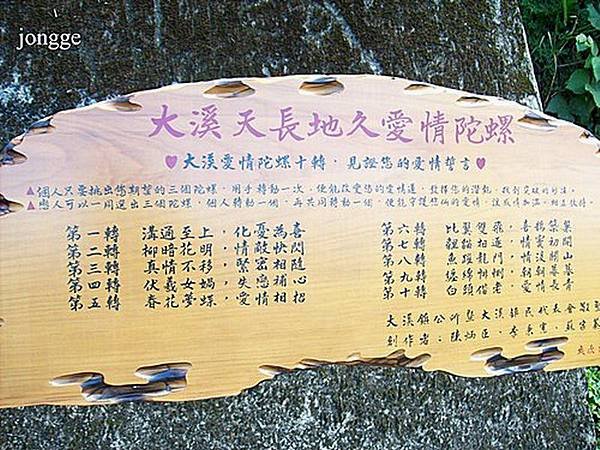 jongge
大溪天長地久愛情陀螺
大溪愛情陀螺十轉，見證您的愛情誓言
個人只要挑出您期望的三個陀螺，用手轉動一次，便能改變您的愛情運，發揮您的潛能，找到突破的方法。
戀人可以一同選出三個陀螺，個人轉動一個，再共同轉動一個，便能守護您倆的愛情，讓感情加溫，相互扶持。
第一轉 溝通至上，化憂為喜
第二轉 柳暗花明，情敵快閃
第三轉 真情不移，緊密相隨
第四轉 伏羲女媧，失戀補心
第五轉 春花夢蝶，愛情相招
第六轉 比翼雙飛，喜鵲築巢
第七轉
第八轉 魚躍龍門，
第九轉 纏綿悱惻，朝朝暮暮
第十轉 白頭偕老，愛情長青
大溪鎮公所暨大溪鎮民代表會
創作者：陳炳臣、李